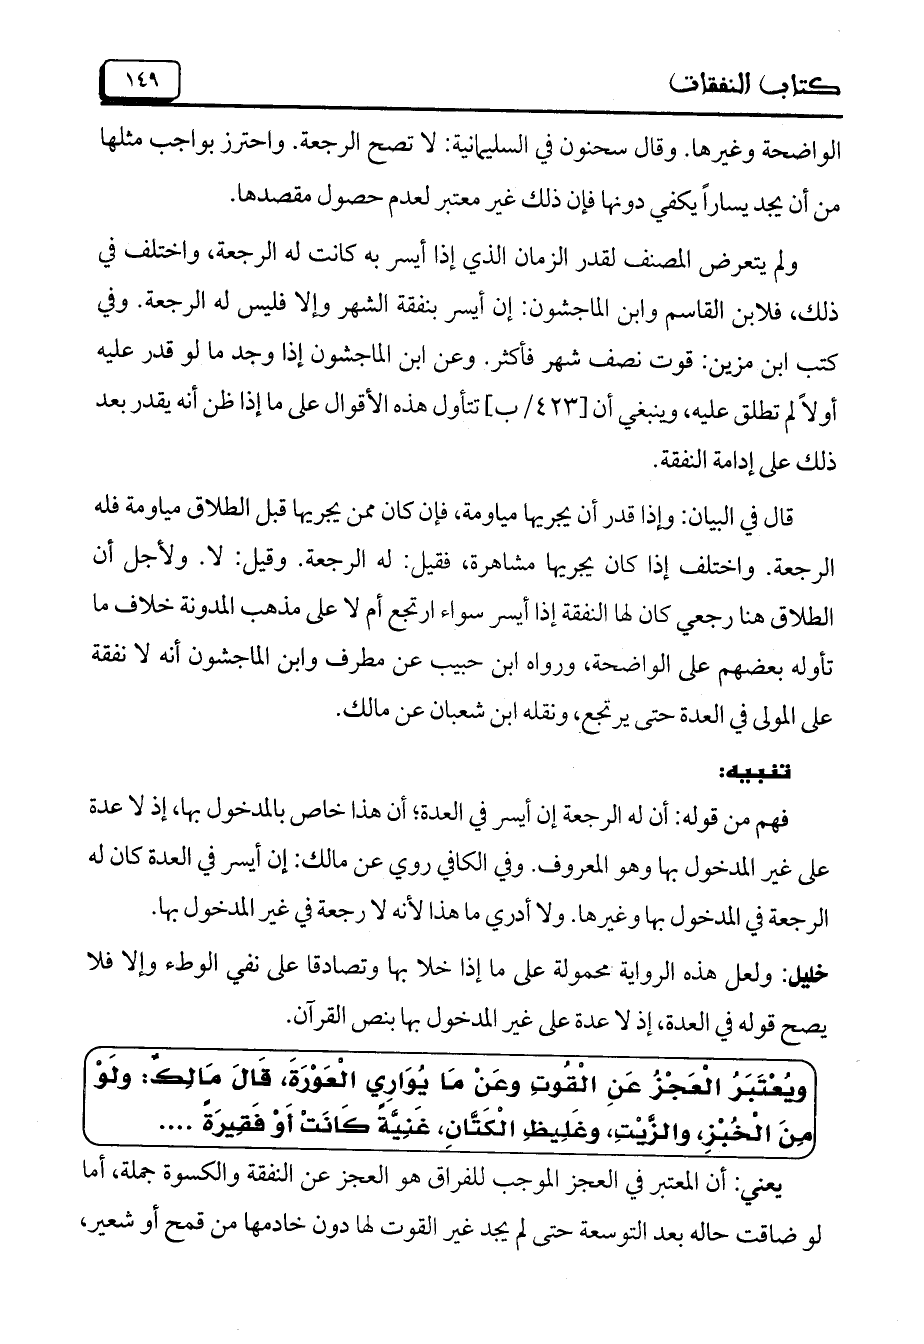 كتاب النفقات ١٤٩
الواضحة وغيرها. وقال سحنون في السليمانية: لا تصح الرجعة. واحترز بواجب مثلها
من أن يجد يساراً يكفي دونها فإن ذلك غير معتبر لعدم حصول مقصدها.
ولم يتعرض المصنف لقدر الزمان الذي إذا أيسر به كانت له الرجعة، واختلف في
ذلك، فلابن القاسم وابن الماجشون: إن أيسر بنفقة الشهر وإلا فليس له الرجعة. وفي
كتب ابن مزين: قوت نصف شهر فأكثر. وعن ابن الماجشون إذا وجد ما لو قدر عليه
أولاً لم تطلق عليه، وينبغي أن [٤٢٣/ ب] تتأول هذه الأقوال على ما إذا ظن أنه يقدر بعد
ذلك على إدامة النفقة.
قال في البيان: وإذا قدر أن يجريها مياومة، فإن كان ممن يجريها قبل الطلاق مياومة فله
الرجعة. واختلف إذا كان يجريها مشاهرة، فقيل: له الرجعة. وقيل: لا. ولأجل أن
الطلاق هنا رجعي كان لها النفقة إذا أيسر سواء ارتجع أم لا على مذهب المدونة خلاف ما
تأوله بعضهم على الواضحة، ورواه ابن حبيب عن مطرف وابن الماجشون أنه لا نفقة
على المولى في العدة حتى يرتجع، ونقله ابن شعبان عن مالك.
تنبيه:
فهم من قوله: أن له الرجعة إن أيسر في العدة؛ أن هذا خاص بالمدخول بها، إذ لا عدة
على غير المدخول بها وهو المعروف. وفي الكافي روي عن مالك: إن أيسر في العدة كان له
الرجعة في المدخول بها وغيرها. ولا أدري ما هذا لأنه لا رجعة في غير المدخول بها.
خليل: ولعل هذه الرواية محمولة على ما إذا خلا بها وتصادقا على نفي الوطء وإلا فلا
يصح قوله في العدة، إذ لا عدة على غير المدخول بها بنص القرآن.
ويُعْتَبَرُ الْعَجْزُ عَنِ الْقُوتِ وعَنْ مَا يُوَارِي الْعَوْرَةَ، قَالَ مَالِكٌ: ولَوْ
مِنَ الْخُبْزِ، والزَّيْتِ، وغَلِيظِ الْكَتَّانِ، غَنِيَّةً كَانَتْ أَوْ فَقِيرَةً ....
يعني: أن المعتبر في العجز الموجب للفراق هو العجز عن النفقة والكسوة جملة، أما
لو ضاقت حاله بعد التوسعة حتى لم يجد غير القوت لها دون خادمها من قمح أو شعير،